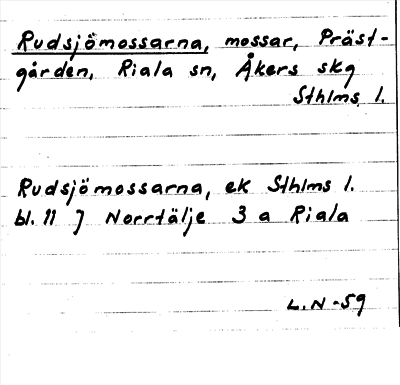 Rudsjömossarna, mossar, Präst-
gården, Riala sn, Åkers skg
Sthlms l.
Rudsjömossarna, ek Sthlms l.
bl. 11 J Norrtälje 3 a Riala
L.N -59